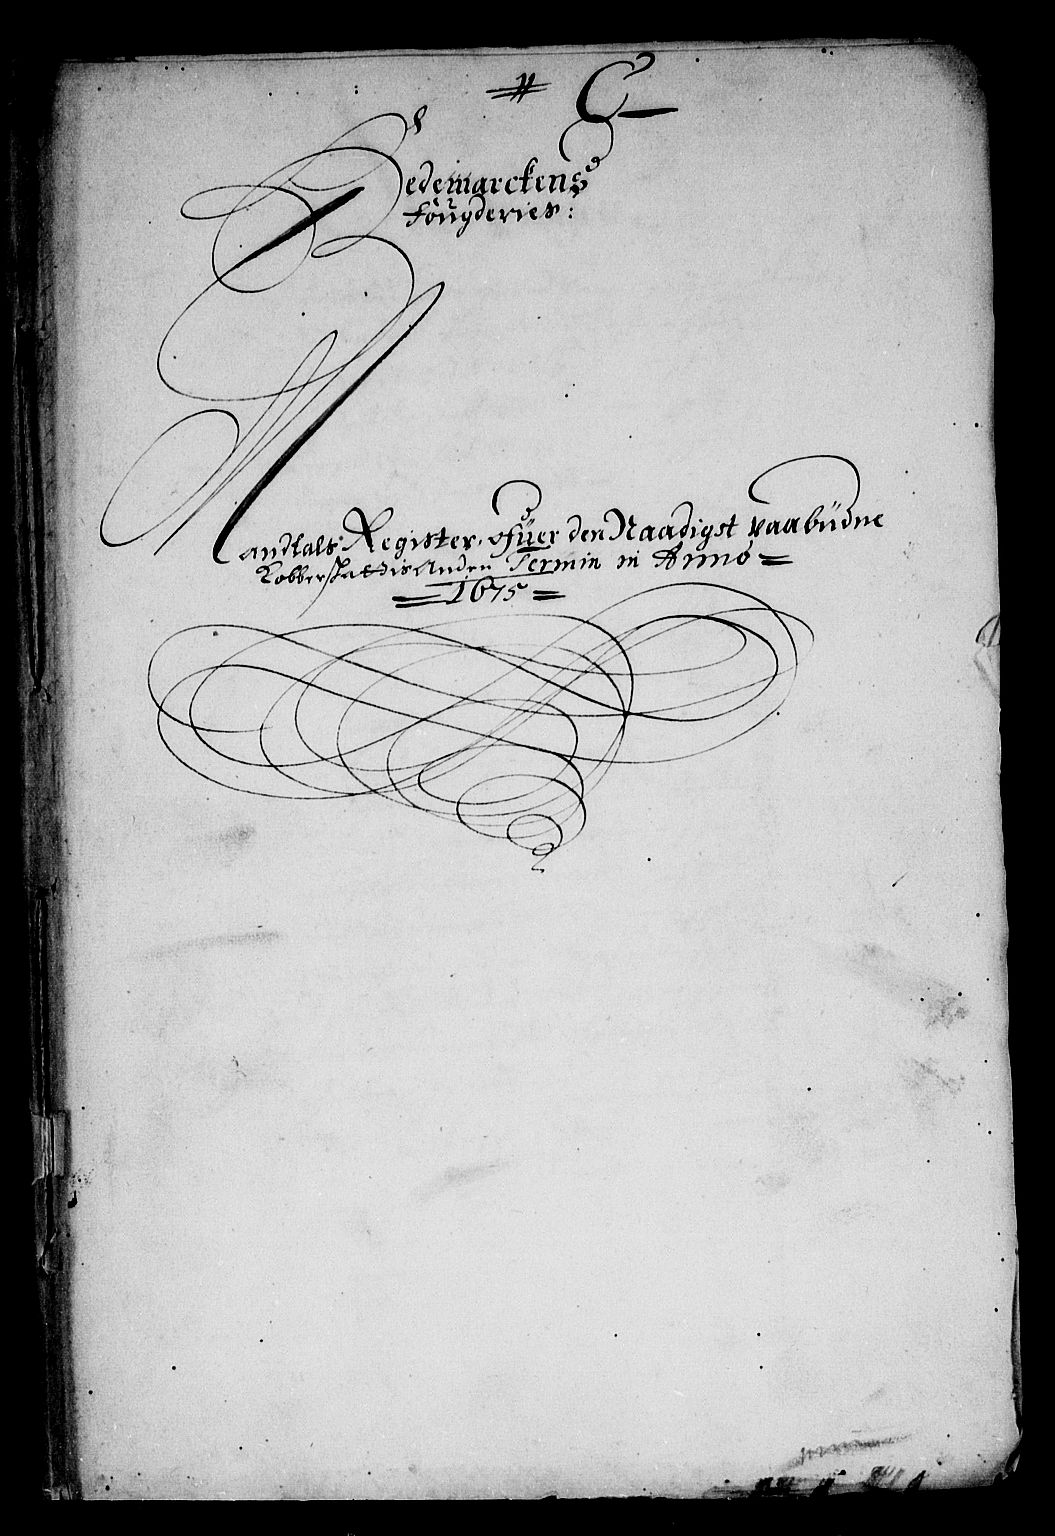 # C
Hedemarckens
fougderies:
Mandtals Register, ofuer den Naadigst paabüdne
Kobberskattis Anden Termin in Anno =
= 1675 =